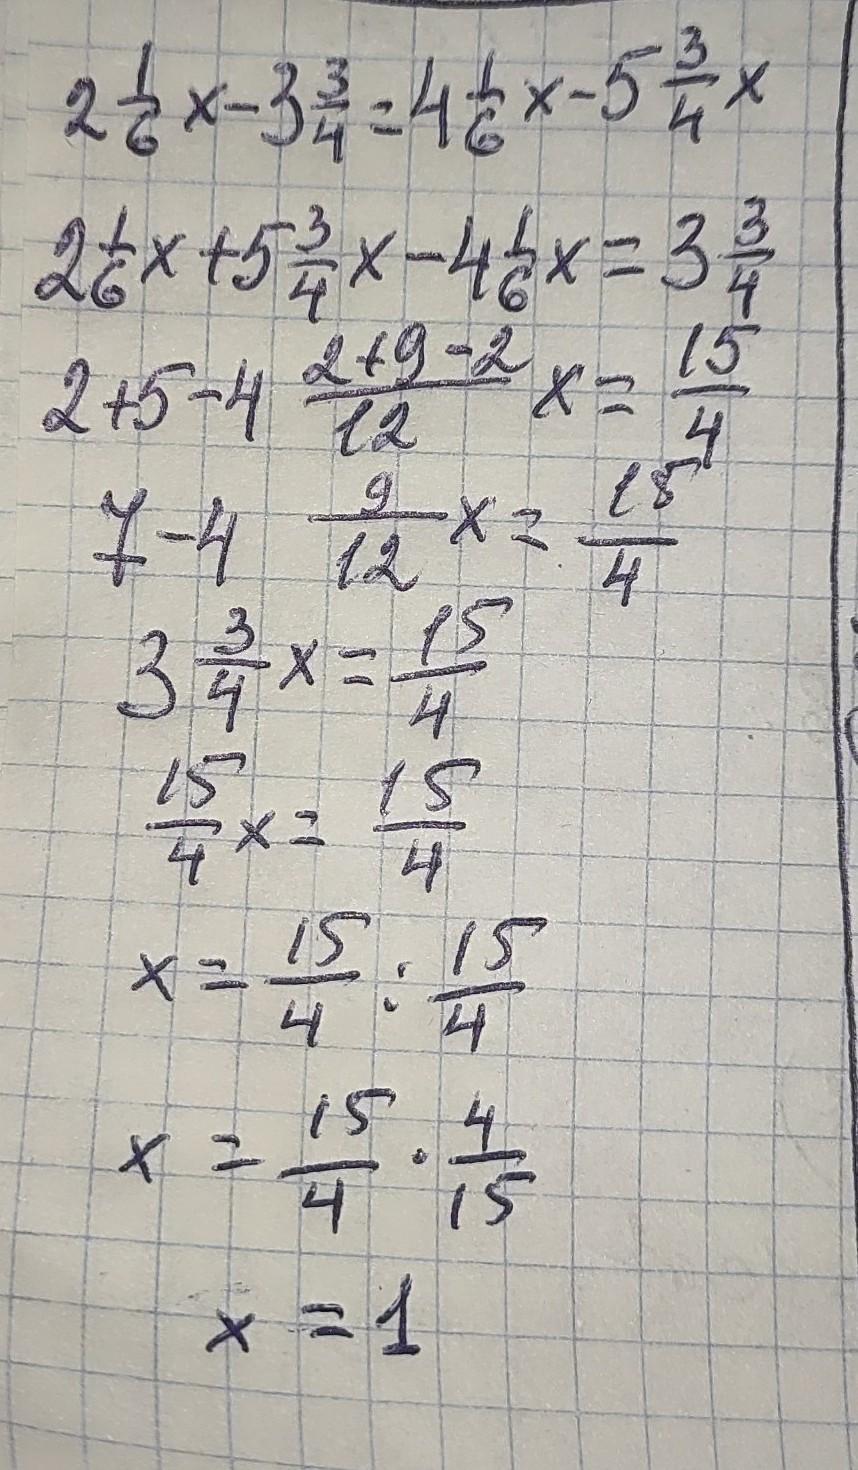 2 1/6 x - 3 3/4 = 4 1/6 x - 5 3/4 x
2 1/6 x + 5 3/4 x - 4 1/6 x = 3 3/4
2+5-4 (2+9-2)/12 x = 15/4
7-4 9/12 x = 15/4
3 3/4 x = 15/4
15/4 x = 15/4
x = 15/4 : 15/4
x = 15/4 · 4/15
x = 1